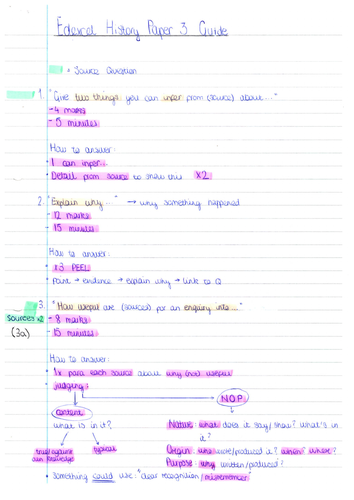 Edexcel History Paper 3 Guide
= Source Question
1. "Give two things you can infer from (source) about..."
- 4 marks
- 5 minutes
How to answer:
I can infer...
Detail from source to show this x2
2. "Explain why..." → why something happened
- 12 marks
- 15 minutes
How to answer:
x3 PEEL
Point → evidence → explain why → link to Q
3. "How useful are (sources) for an enquiry into..."
Sources x2 - 8 marks
(3a) - 15 minutes
How to answer:
1x para each source about why (not) useful
judging:
NOP
content
what is in it?
Nature: what does it say/show? what's in it?
true/against own knowledge
typical
Origin: who wrote/produced it? when? where?
Purpose: why written/produced?
• Something could use: "clear recognition /